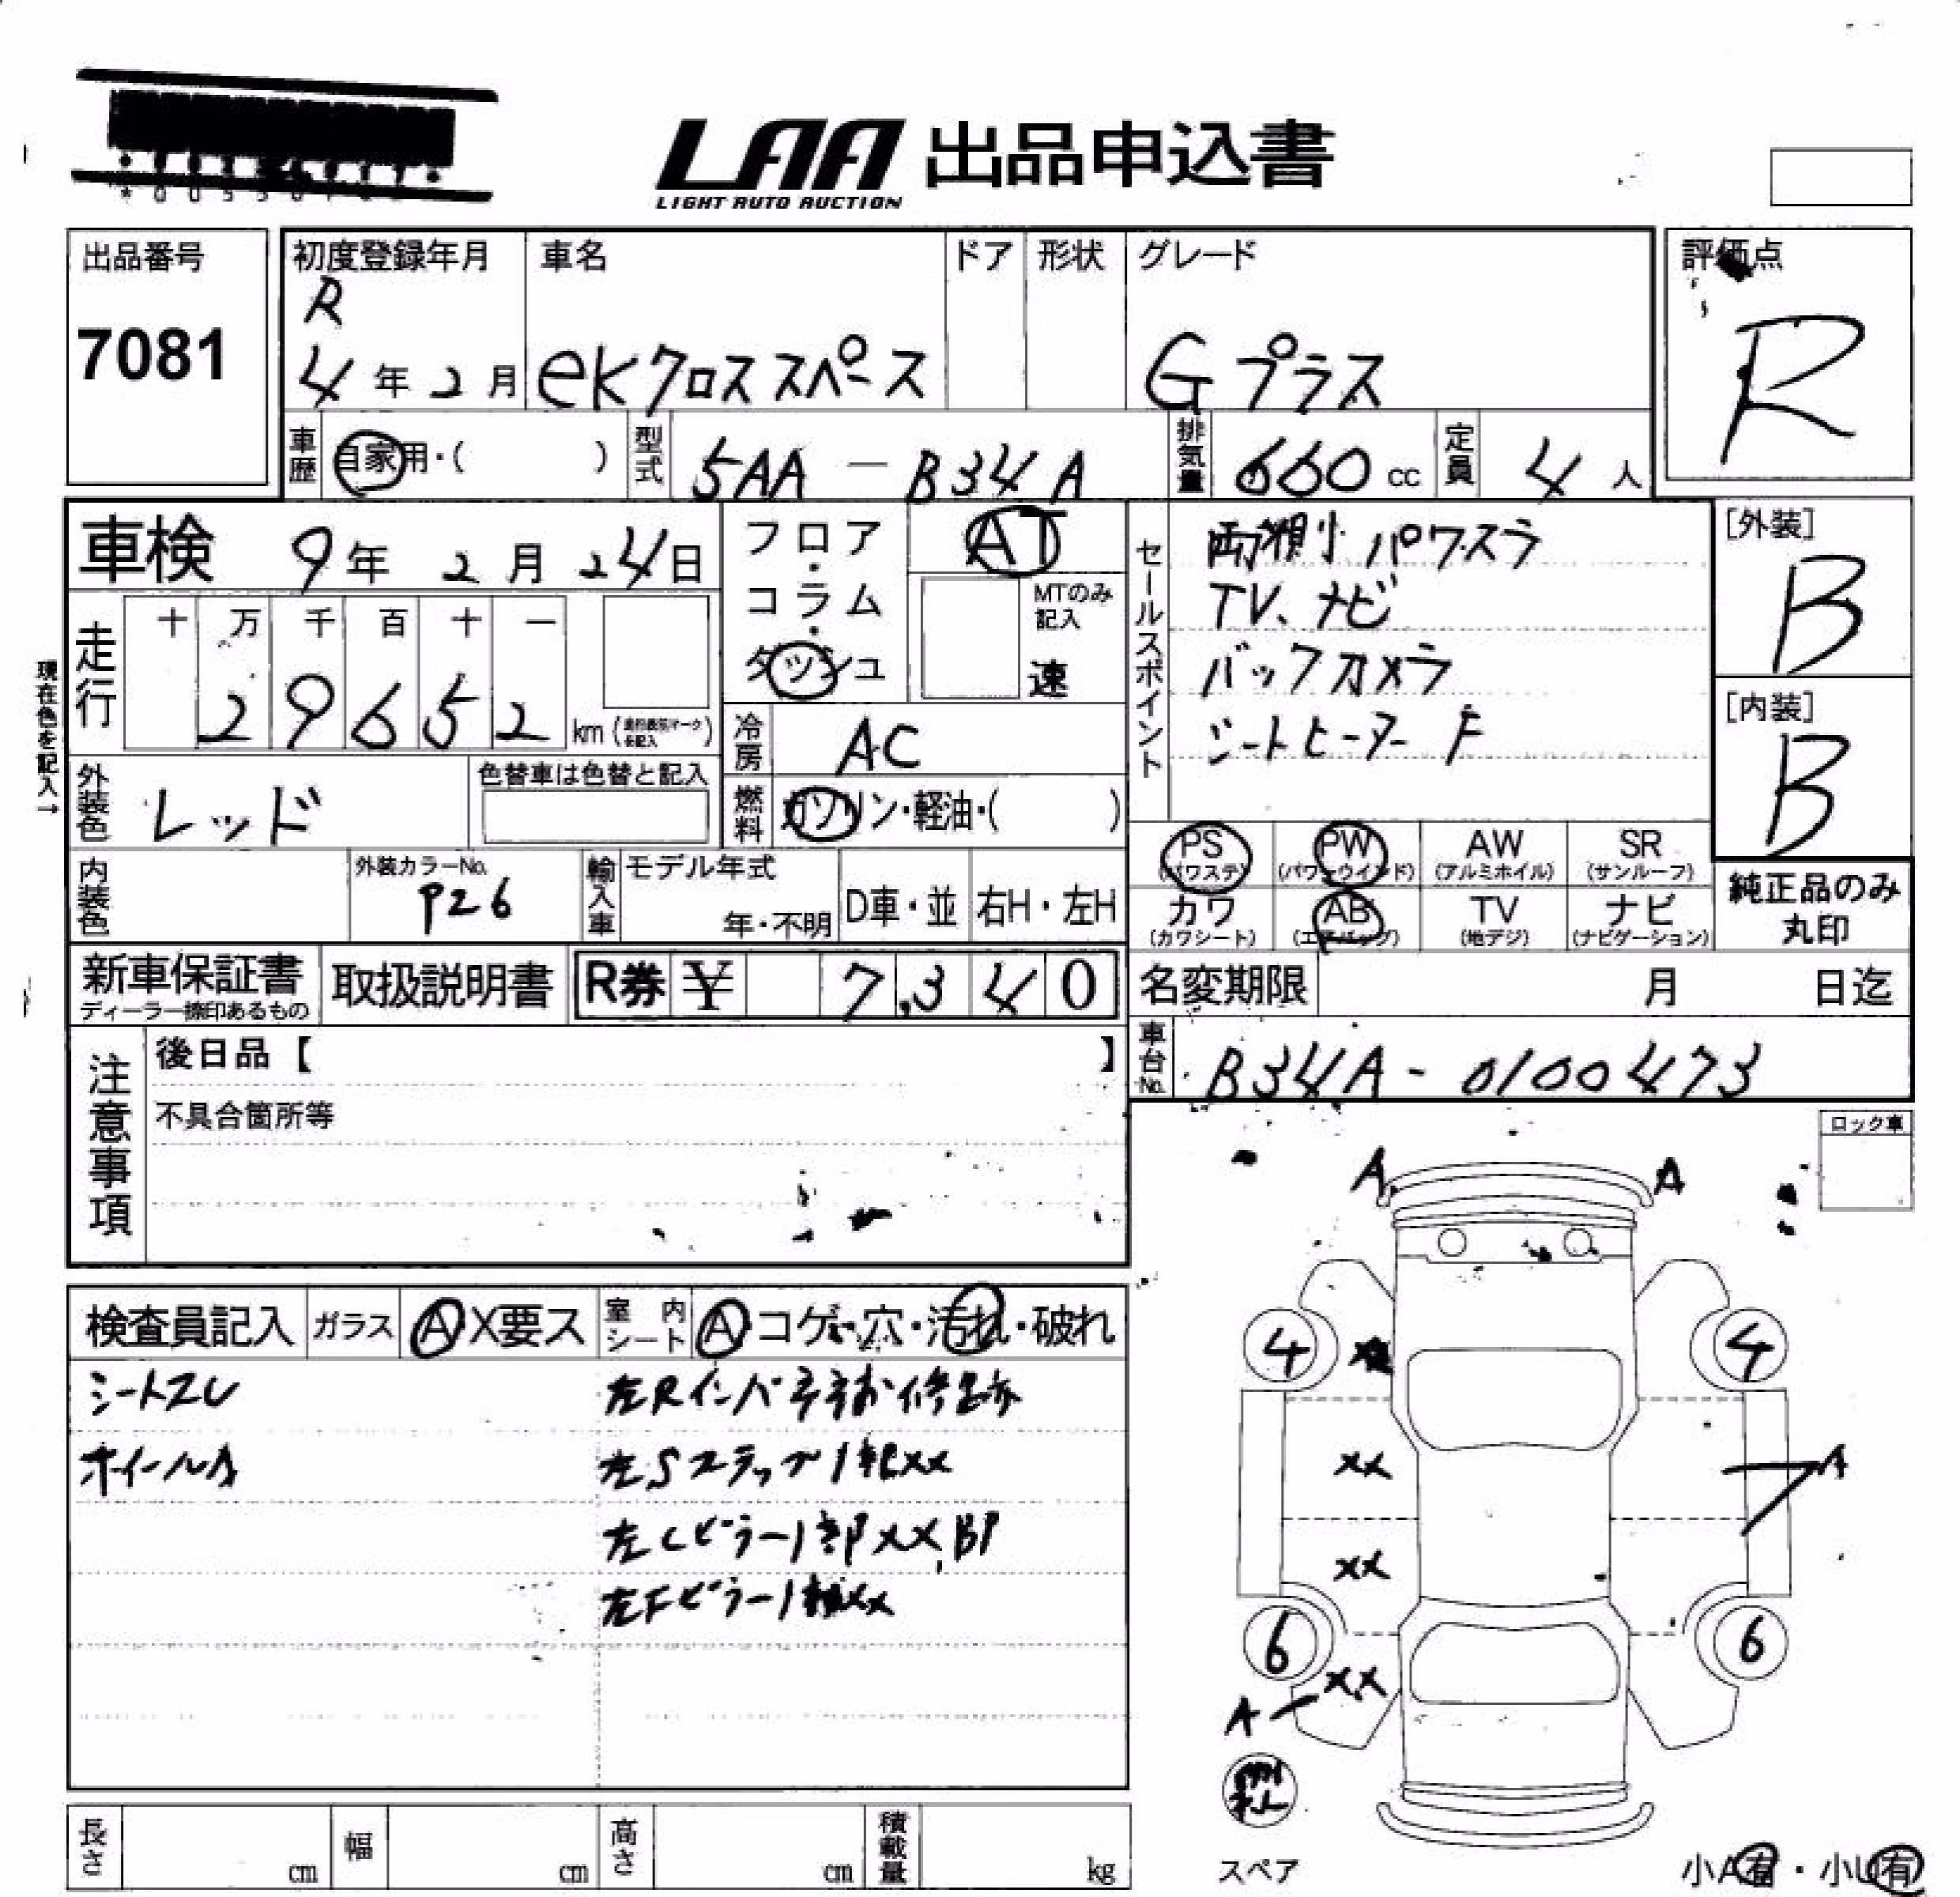 LAA 出品申込書
LIGHT AUTO AUCTION
出品番号
7081
初度登録年月
R
4年2月
車名
eKクロススペース
ドア
形状
グレード
Gプラス
評価点
R
車歴
自家用・( )
型式
5AA-B34A
排気量
660cc
定員
4人
車検 9年2月24日
フロア・コラム・ダッシュ
AT
MTのみ記入
速
セールスポイント
両側パワスラ
TV、ナビ
バックカメラ
シートヒーター F
[外装]
B
[内装]
B
現在色を記入→
走行
十 万 千 百 十 一
29652 km
冷房
AC
外装色
レッド
色替車は色替と記入
燃料
ガソリン・軽油・( )
PS (パワステ)
PW (パワーウインド)
AW (アルミホイル)
SR (サンルーフ)
カワ (カワシート)
AB (エアバッグ)
TV (地デジ)
ナビ (ナビゲーション)
純正品のみ丸印
内装色
外装カラーNo.
P26
輸入車
モデル年式
年・不明
D車・並
右H・左H
新車保証書
ディーラー捺印あるもの
取扱説明書
R券 ¥ 7,340
名変期限 月 日迄
車台No.
B34A-0100473
注意事項
後日品【 】
不具合箇所等
ロック車
検査員記入
ガラス
A X要ス
室内シート
A コゲ・穴・汚れ・破れ
シートスレ
ホイールA
左Rインパネ
左Sステップ1部XX
左Cピラー1部XX,BP
左Fピラー1部XX
A
A
4
4
XX
A
XX
6
6
XX
A
スペア
小A有・小U有
長さ cm
幅 cm
高さ cm
積載量 kg